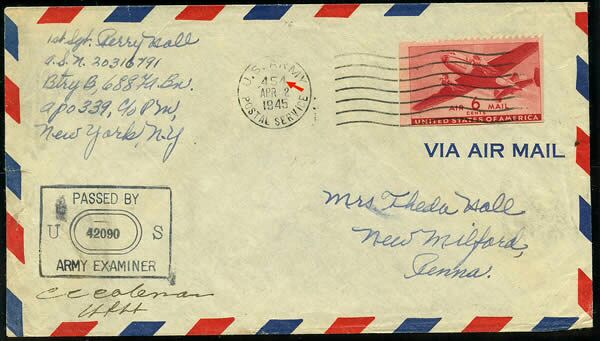 1st Sgt. Perry Hall
A.S.N. 20316791
Btry B, 688 FA. Bn.
APO 339, C/o PM,
New York, N.Y.
U.S. ARMY
45A
APR 2
1945
POSTAL SERVICE
AIR 6 MAIL
CENTS
UNITED STATES OF AMERICA
VIA AIR MAIL
Mrs Theda Hall
New Milford,
Penna.
PASSED BY
U 42090 S
ARMY EXAMINER
CC Coleman